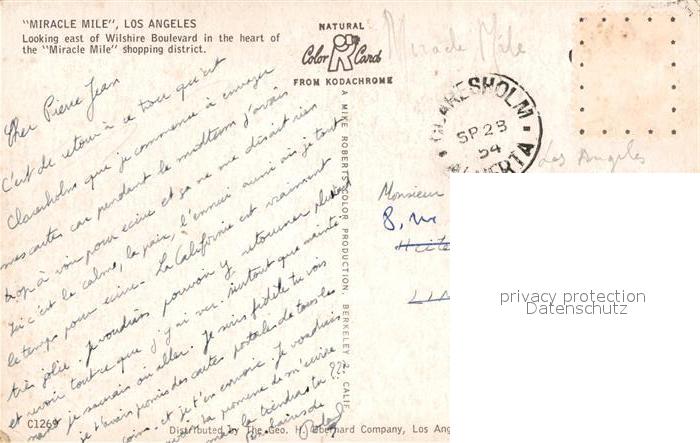 "MIRACLE MILE", LOS ANGELES
Looking east of Wilshire Boulevard in the heart of
the "Miracle Mile" shopping district.
NATURAL
Color Card
FROM KODACHROME
Miracle Mile
CLARESHOLM
SP 28
54
ALBERTA
Los Angeles
Cher Pierre Jean
C'est de retour à ce trou qu'est
Claresholm que je commence à envoyer
mes cartes car pendant le midterm j'avais
trop à voir pour écrire et ça ne me disait rien
Ici c'est le calme, la paix, l'ennui aussi où je tout
le temps pour écrire. La Californie est vraiment
très jolie. Je voudrais pouvoir y retourner
et revoir tout ce que j'y ai vu. Surtout que
je saurais où aller. Je suis fidèle tu vois
je t'avais promis des cartes postales de tous les
coins et je t'en envoie. Je voudrais
la promesse de m'écrire
mais la tiendras tu ??
A MIKE ROBERTS COLOR PRODUCTION. BERKELEY 2, CALIF.
Monsieur
8,
C1269
Distributed by The Geo. H. Eberhard Company, Los Ang
privacy protection
Datenschutz